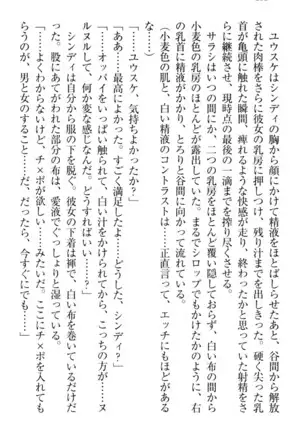 ユウスケはシンディの胸から顔にかけて精液をほとばしらせたあと、谷間から解放
された肉棒をさらに彼女の乳房に押しつけ、残り汁までを出しきった。硬く尖った乳
首が亀頭に触れた瞬間、痺れるような快感が走り、終わったかと思っていた射精をさ
らに継続させ、現時点の最後の一滴までを搾り尽くさせる。
サラシはいつの間にか、二つの乳房をほとんど覆い隠しておらず、白い布の間から
小麦色の乳房のほとんどが露出していた。まるでシロップでもかけたかのように、右
の乳首に精液がかかり、とろりと谷間に向かって流れている。
（小麦色の肌と、白い精液のコントラストは……正直言って、エッチにもほどがある
な……）
「ユウスケ、気持ちよかったか？」
「ああ……最高によかった。すごく満足したよ……どうした、シンディ？」
「……オッパイをいっぱい触られて、白い汁をかけられてから、こっちの方が……ヌ
ルヌルして、何か変な感じなんだ。どうすればいい……？」
シンディは自分から服の下を脱ぐ。彼女の下着は褌で、白い布を巻いているだけだ
った。股にあてがわれた部分の布は、愛液でぐっしょりと湿っている。
「……よくわからないけど、チ×ポが欲しい……みたいだ。ここにチ×ポを入れても
らうのが、男と女のすること……だ、だったら、今すぐにでも……」